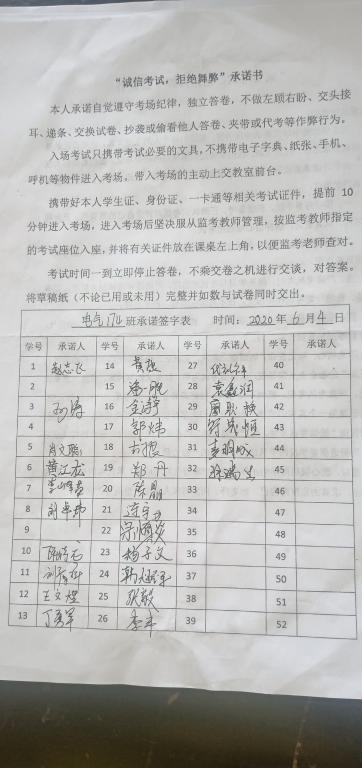 “诚信考试，拒绝舞弊”承诺书
本人承诺自觉遵守考场纪律，独立答卷，不做左顾右盼、交头接
耳、递条、交换试卷、抄袭或偷看他人答卷、夹带或代考等作弊行为。
入场考试只携带考试必要的文具，不携带电子字典、纸张、手机、
呼机等物件进入考场，带入考场的主动上交教室前台。
携带好本人学生证、身份证、一卡通等相关考试证件，提前 10
分钟进入考场，进入考场后坚决服从监考教师管理，按监考教师指定
的考试座位入座，并将有关证件放在课桌左上角，以便监考老师查对。
考试时间一到立即停止答卷，不乘交卷之机进行交谈，对答案。
将草稿纸（不论已用或未用）完整并如数与试卷同时交出。
电气174班承诺签字表 时间：2020年6月4日
学号 承诺人 学号 承诺人 学号 承诺人 学号 承诺人
1 赵志飞 14 黄 27 40
2 15 28 袁鑫润 41
3 16 29 42
4 17 郭炜 30 43
5 肖文鹏 18 31 44
6 黄江宏 19 郑丹 32 45
7 20 陈晶 33 46
8 21 34 47
9 22 35 48
10 23 杨子文 36 49
11 24 37 50
12 王文煜 25 狄毅 38 51
13 丁勇军 26 李丰 39 52